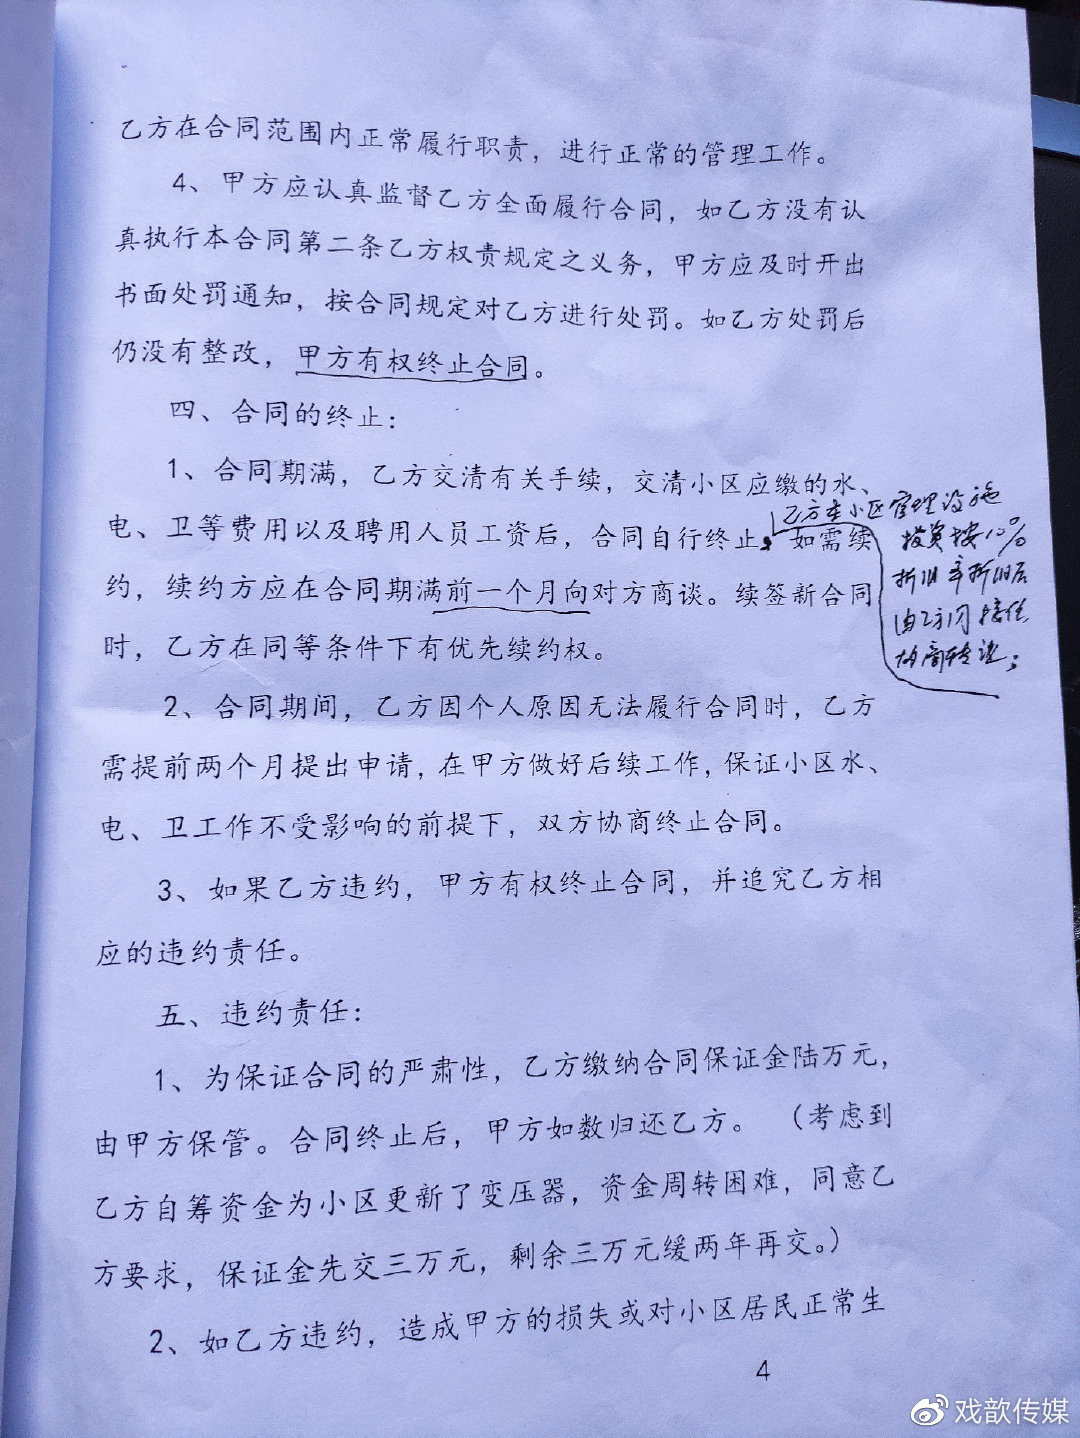 乙方在合同范围内正常履行职责，进行正常的管理工作。
4、甲方应认真监督乙方全面履行合同，如乙方没有认
真执行本合同第二条乙方权责规定之义务，甲方应及时开出
书面处罚通知，按合同规定对乙方进行处罚。如乙方处罚后
仍没有整改，甲方有权终止合同。
四、合同的终止：
1、合同期满，乙方交清有关手续，交清小区应缴的水、
电、卫等费用以及聘用人员工资后，合同自行终止。如需续
约，续约方应在合同期满前一个月向对方商谈。续签新合同
时，乙方在同等条件下有优先续约权。
乙方在小区管理设施
投资按10%
折旧率折旧后
由乙方同接任
协商转让；
2、合同期间，乙方因个人原因无法履行合同时，乙方
需提前两个月提出申请，在甲方做好后续工作，保证小区水、
电、卫工作不受影响的前提下，双方协商终止合同。
3、如果乙方违约，甲方有权终止合同，并追究乙方相
应的违约责任。
五、违约责任：
1、为保证合同的严肃性，乙方缴纳合同保证金陆万元，
由甲方保管。合同终止后，甲方如数归还乙方。（考虑到
乙方自筹资金为小区更新了变压器，资金周转困难，同意乙
方要求，保证金先交三万元，剩余三万元缓两年再交。）
2、如乙方违约，造成甲方的损失或对小区居民正常生
4
戏歆传媒